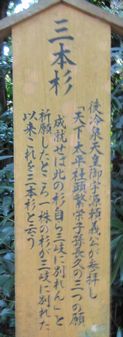 三本杉
後冷泉天皇御宇源頼義公が参拝し
「天下太平社頭繁栄子孫長久の三つの願
成就せば此の杉自ら三岐に別れん」と
祈願したところ一株の杉が三岐に別れた
以来これを三本杉と云う